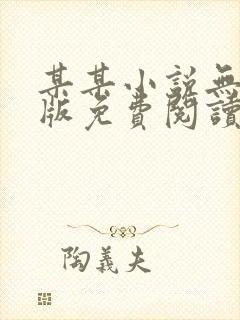 某某小说無
版免費閱讀
陶義夫